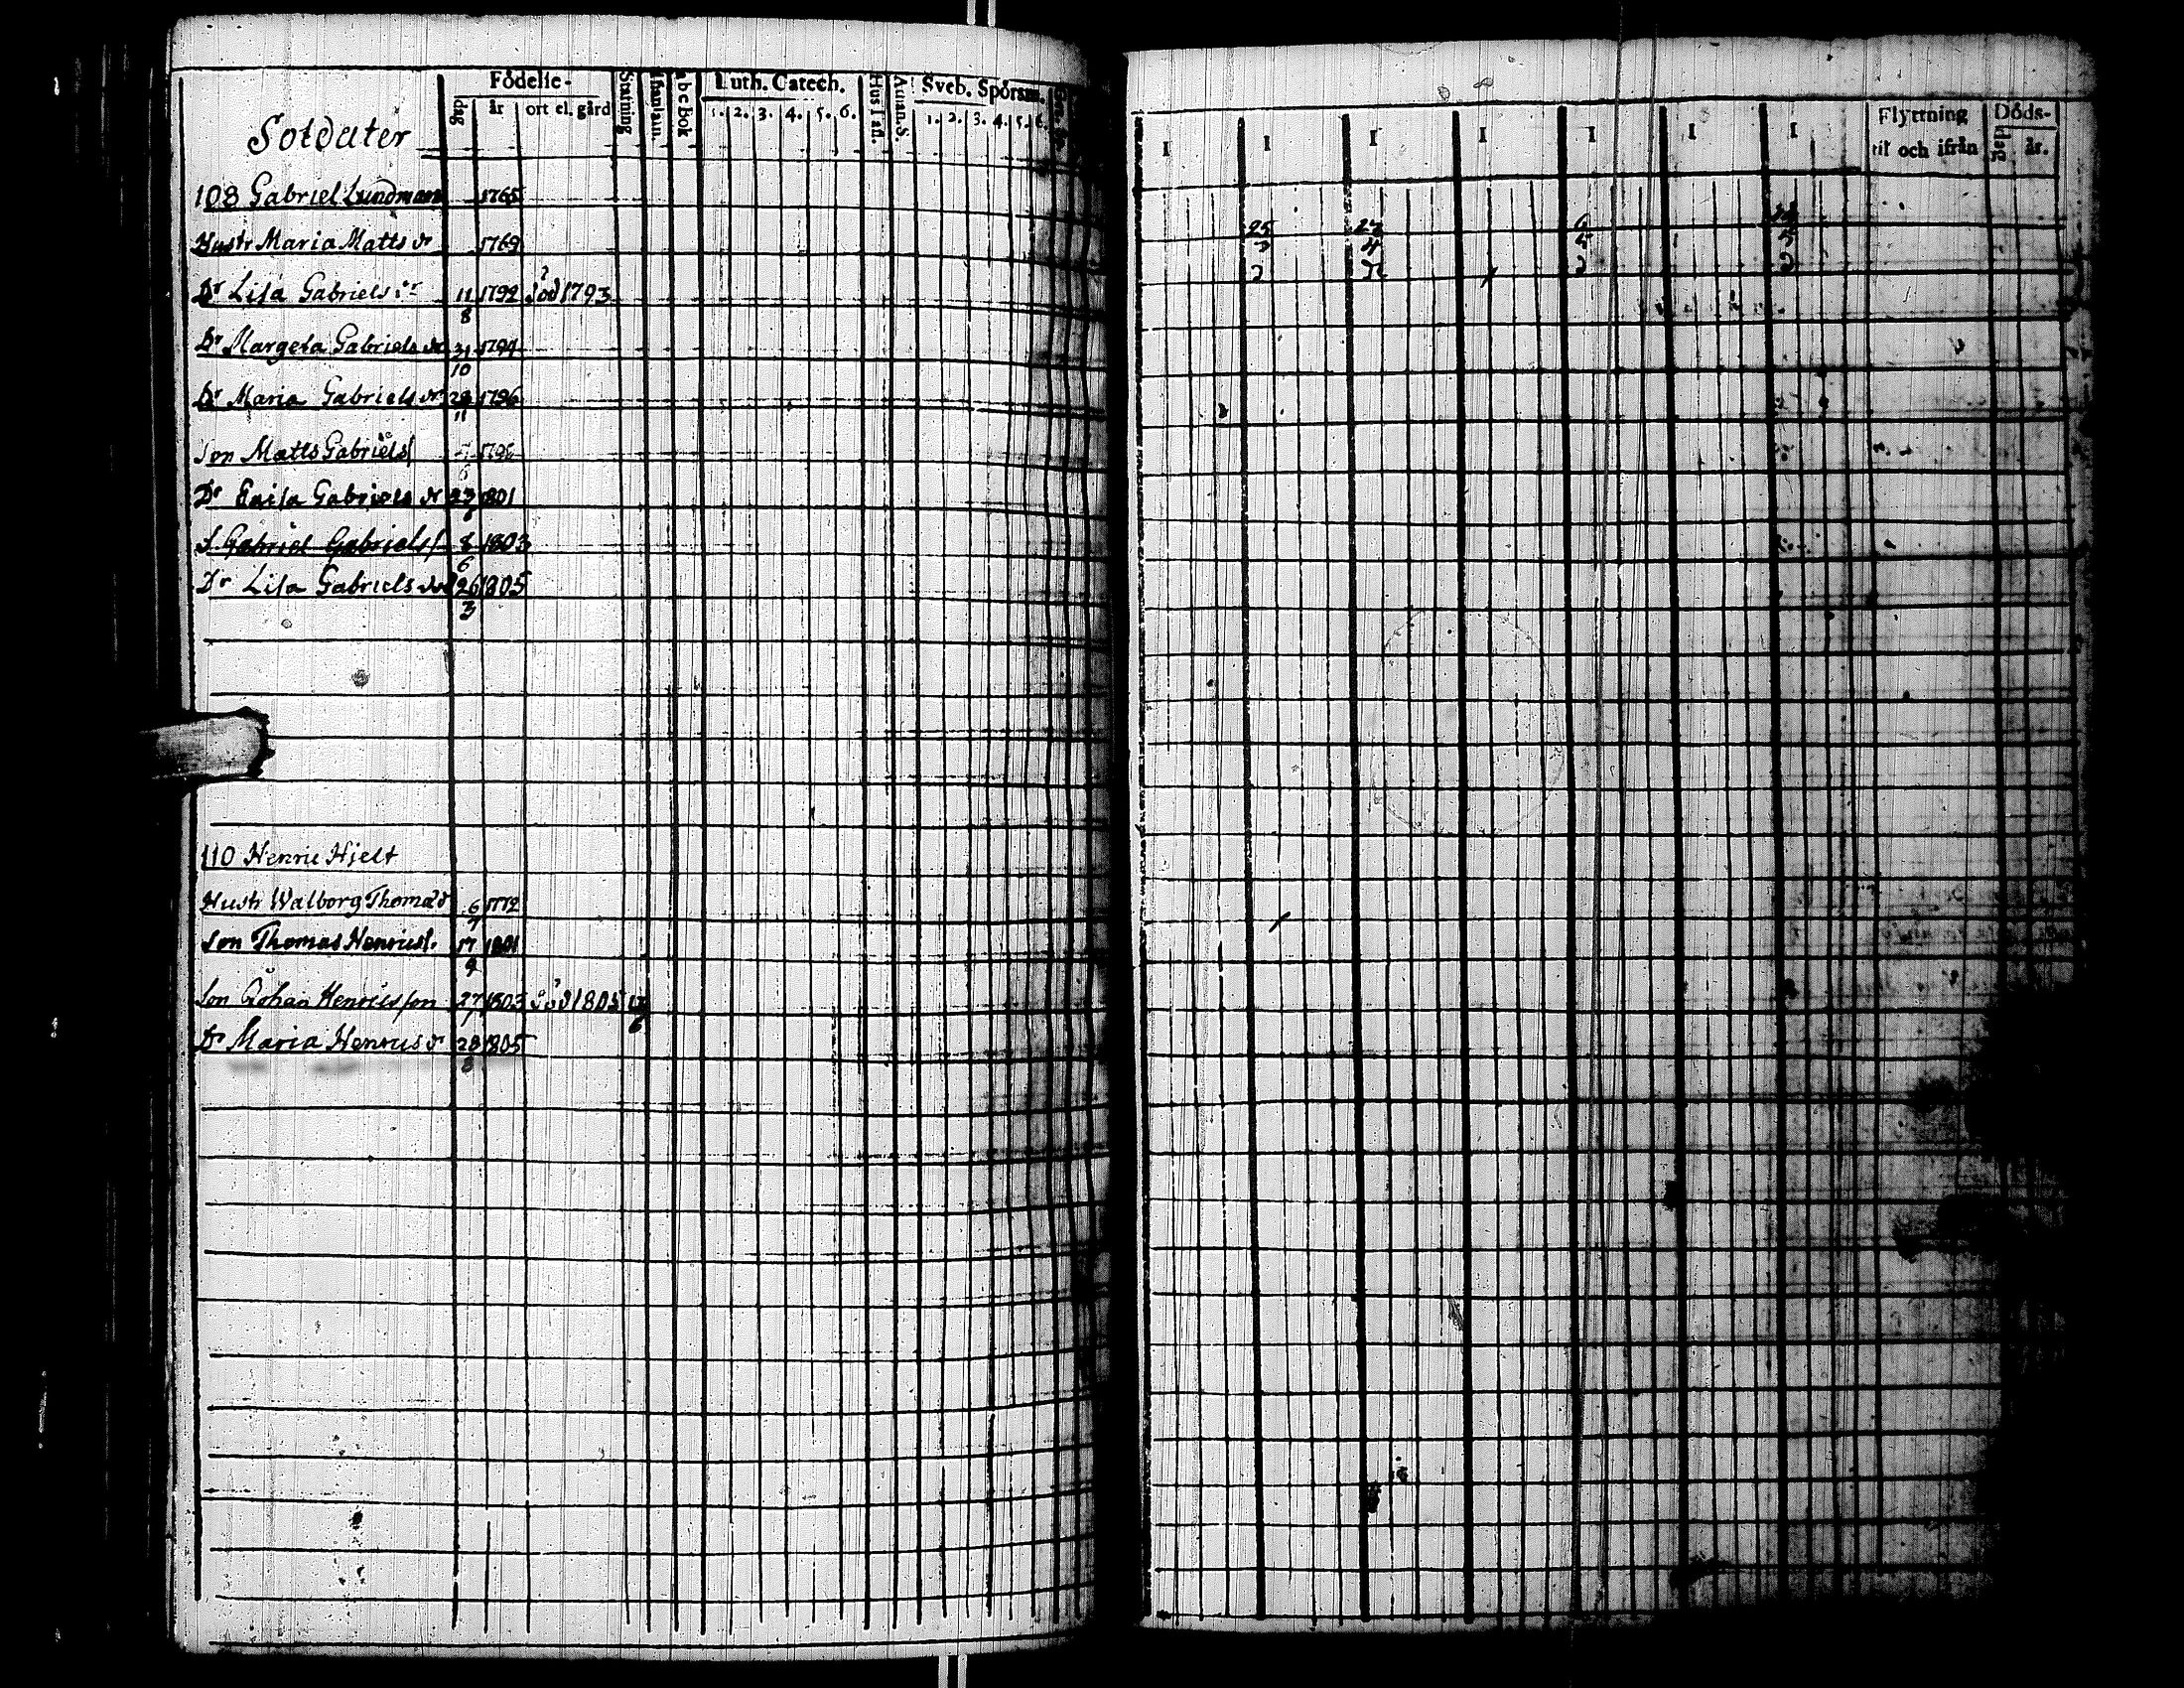 Födelse- Luth. Catech. Sveb. Spörsm.
dag år ort el. gård Stafning abcbok 1. 2. 3. 4. 5. 6. 1. 2. 3. 4. 5. 6.
Soldater
108 Gabriel Lundman 1765
Hustr Maria Matts dr 1769
Dr Lisa Gabriels dr 11/8 1792 död 1793
Dr Margeta Gabriels dr 31/10 1794
Dr Maria Gabriels dr 28/11 1796
Son Matts Gabriels
Dr Caisa Gabriels dr 23 1801
S. Gabriel Gabriels 8/6 1803
Dr Lisa Gabriels dr 26/3 1805
110 Henric Hjelt
Hustr Walborg Thomæd 6/7 1772
Son Thomas Henricss. 17/9 1801
Son Johan Henricsson 27/7 1803 död 1805
Dr Maria Henricsdr 28/8 1805
I I I I I I I Flyttning Döds-
til och ifrån dag år.
25 6
3 4 5 5